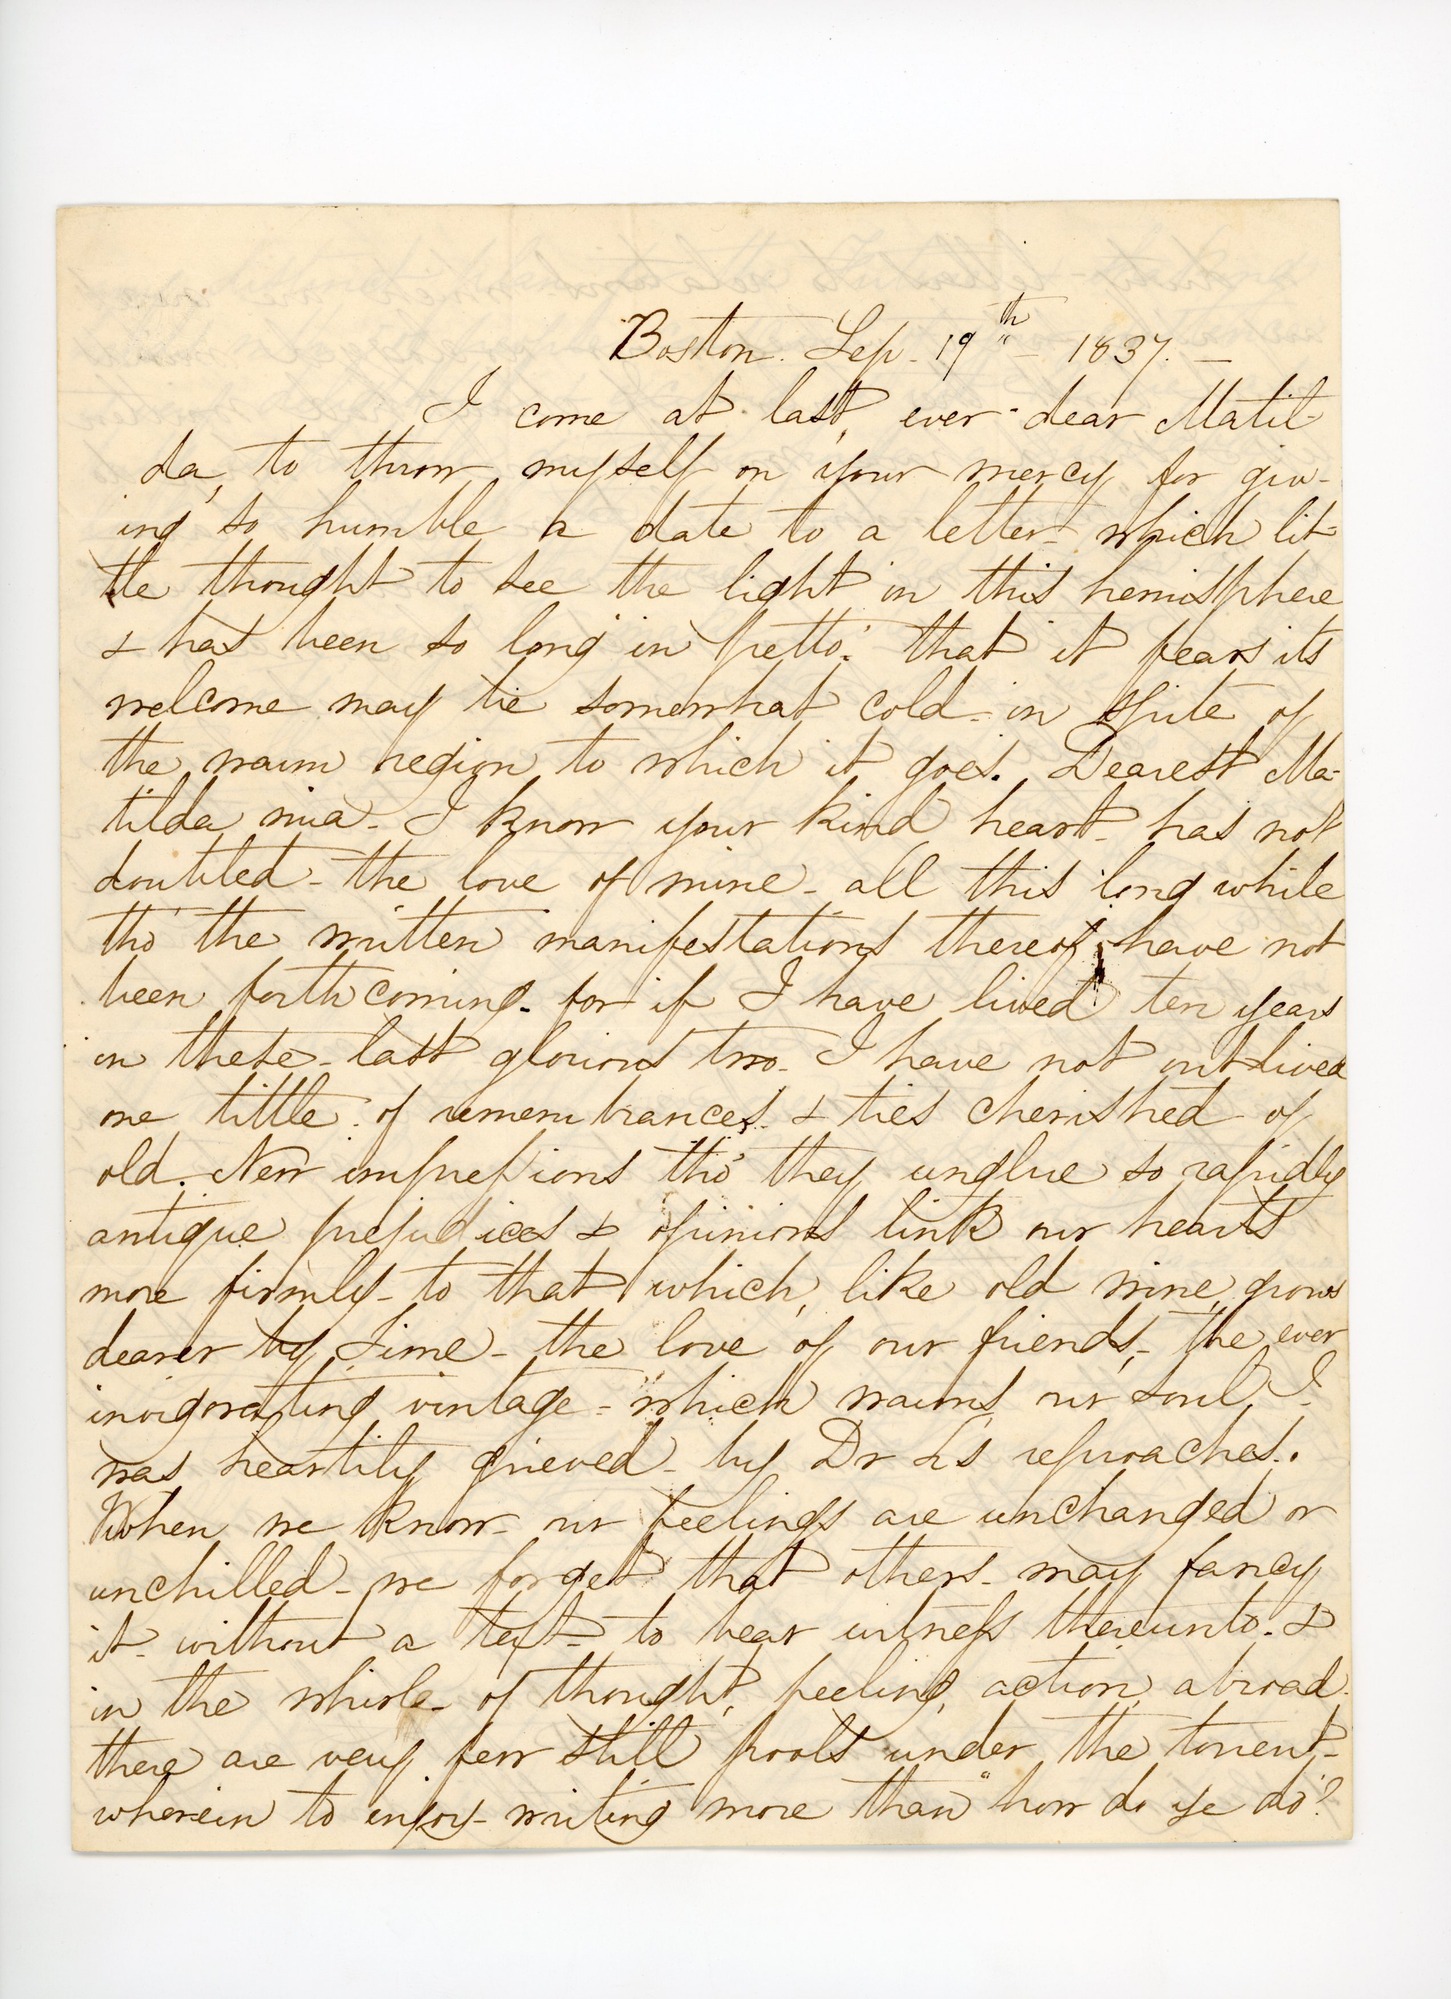 Boston. Sep. 19th - 1837. -
I come at last, ever dear Matil-
da, to throw myself on your mercy for giv-
ing so humble a date to a letter which lit-
tle thought to see the light in this hemisphere
& has been so long "in petto" that it fears its
welcome may be somewhat cold - in spite of
the warm region to which it goes. Dearest Ma-
tilda mia - I know your kind heart - has not
doubted - the love of mine - all this long while
tho' the written manifestations thereof, have not
been forthcoming - for if I have lived ten years
in these - last glorious two - I have not outlived
one tittle of remembrances & ties cherished of
old. New impressions tho' they unglue so rapidly
antique prejudices & opinions link our hearts
more firmly - to that which, like old wine, grows
dearer by time - the love of our friends, - the ever
invigorating vintage - which warms our soul. I
was heartily grieved - by Dr L's reproaches.
When we know - our feelings are unchanged or
unchilled - we forget that others - may fancy
it - without a text - to bear witness thereunto. &
in the whirl - of thought, feeling, action, abroad -
there are very few still pools under the torrent -
wherein to enjoy - writing more than "how do ye do"?